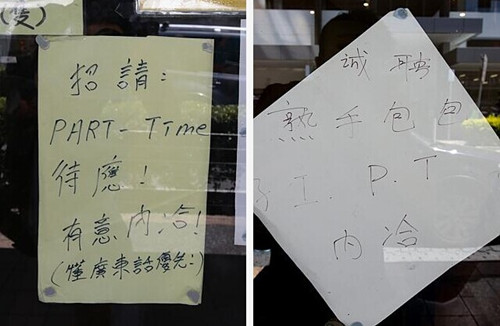 招請：
PART-TIme
待應！
有意內洽！
(懂廣東話優先：)
誠聘
熟手包包
工. P.T
內洽